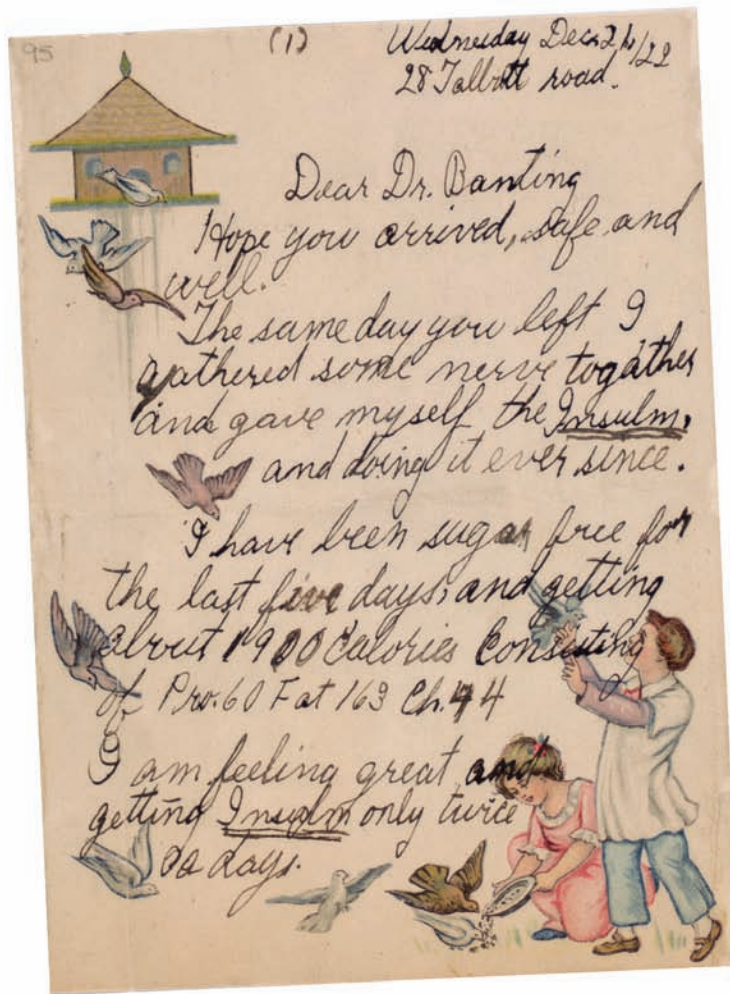 95
(1) Wednesday Dec
28 road.
Dear Dr. Banting
Hope you arrived, safe and
well.
The same day you left I
gathered some nerve togather
and gave myself the Insulin,
and doing it ever since.
I have been sugar free for
the last five days, and getting
about 1900 Calories Consisting
of Pro. 60 Fat 163 Ch. 44
I am feeling great and
getting Insulin only twice
a days.